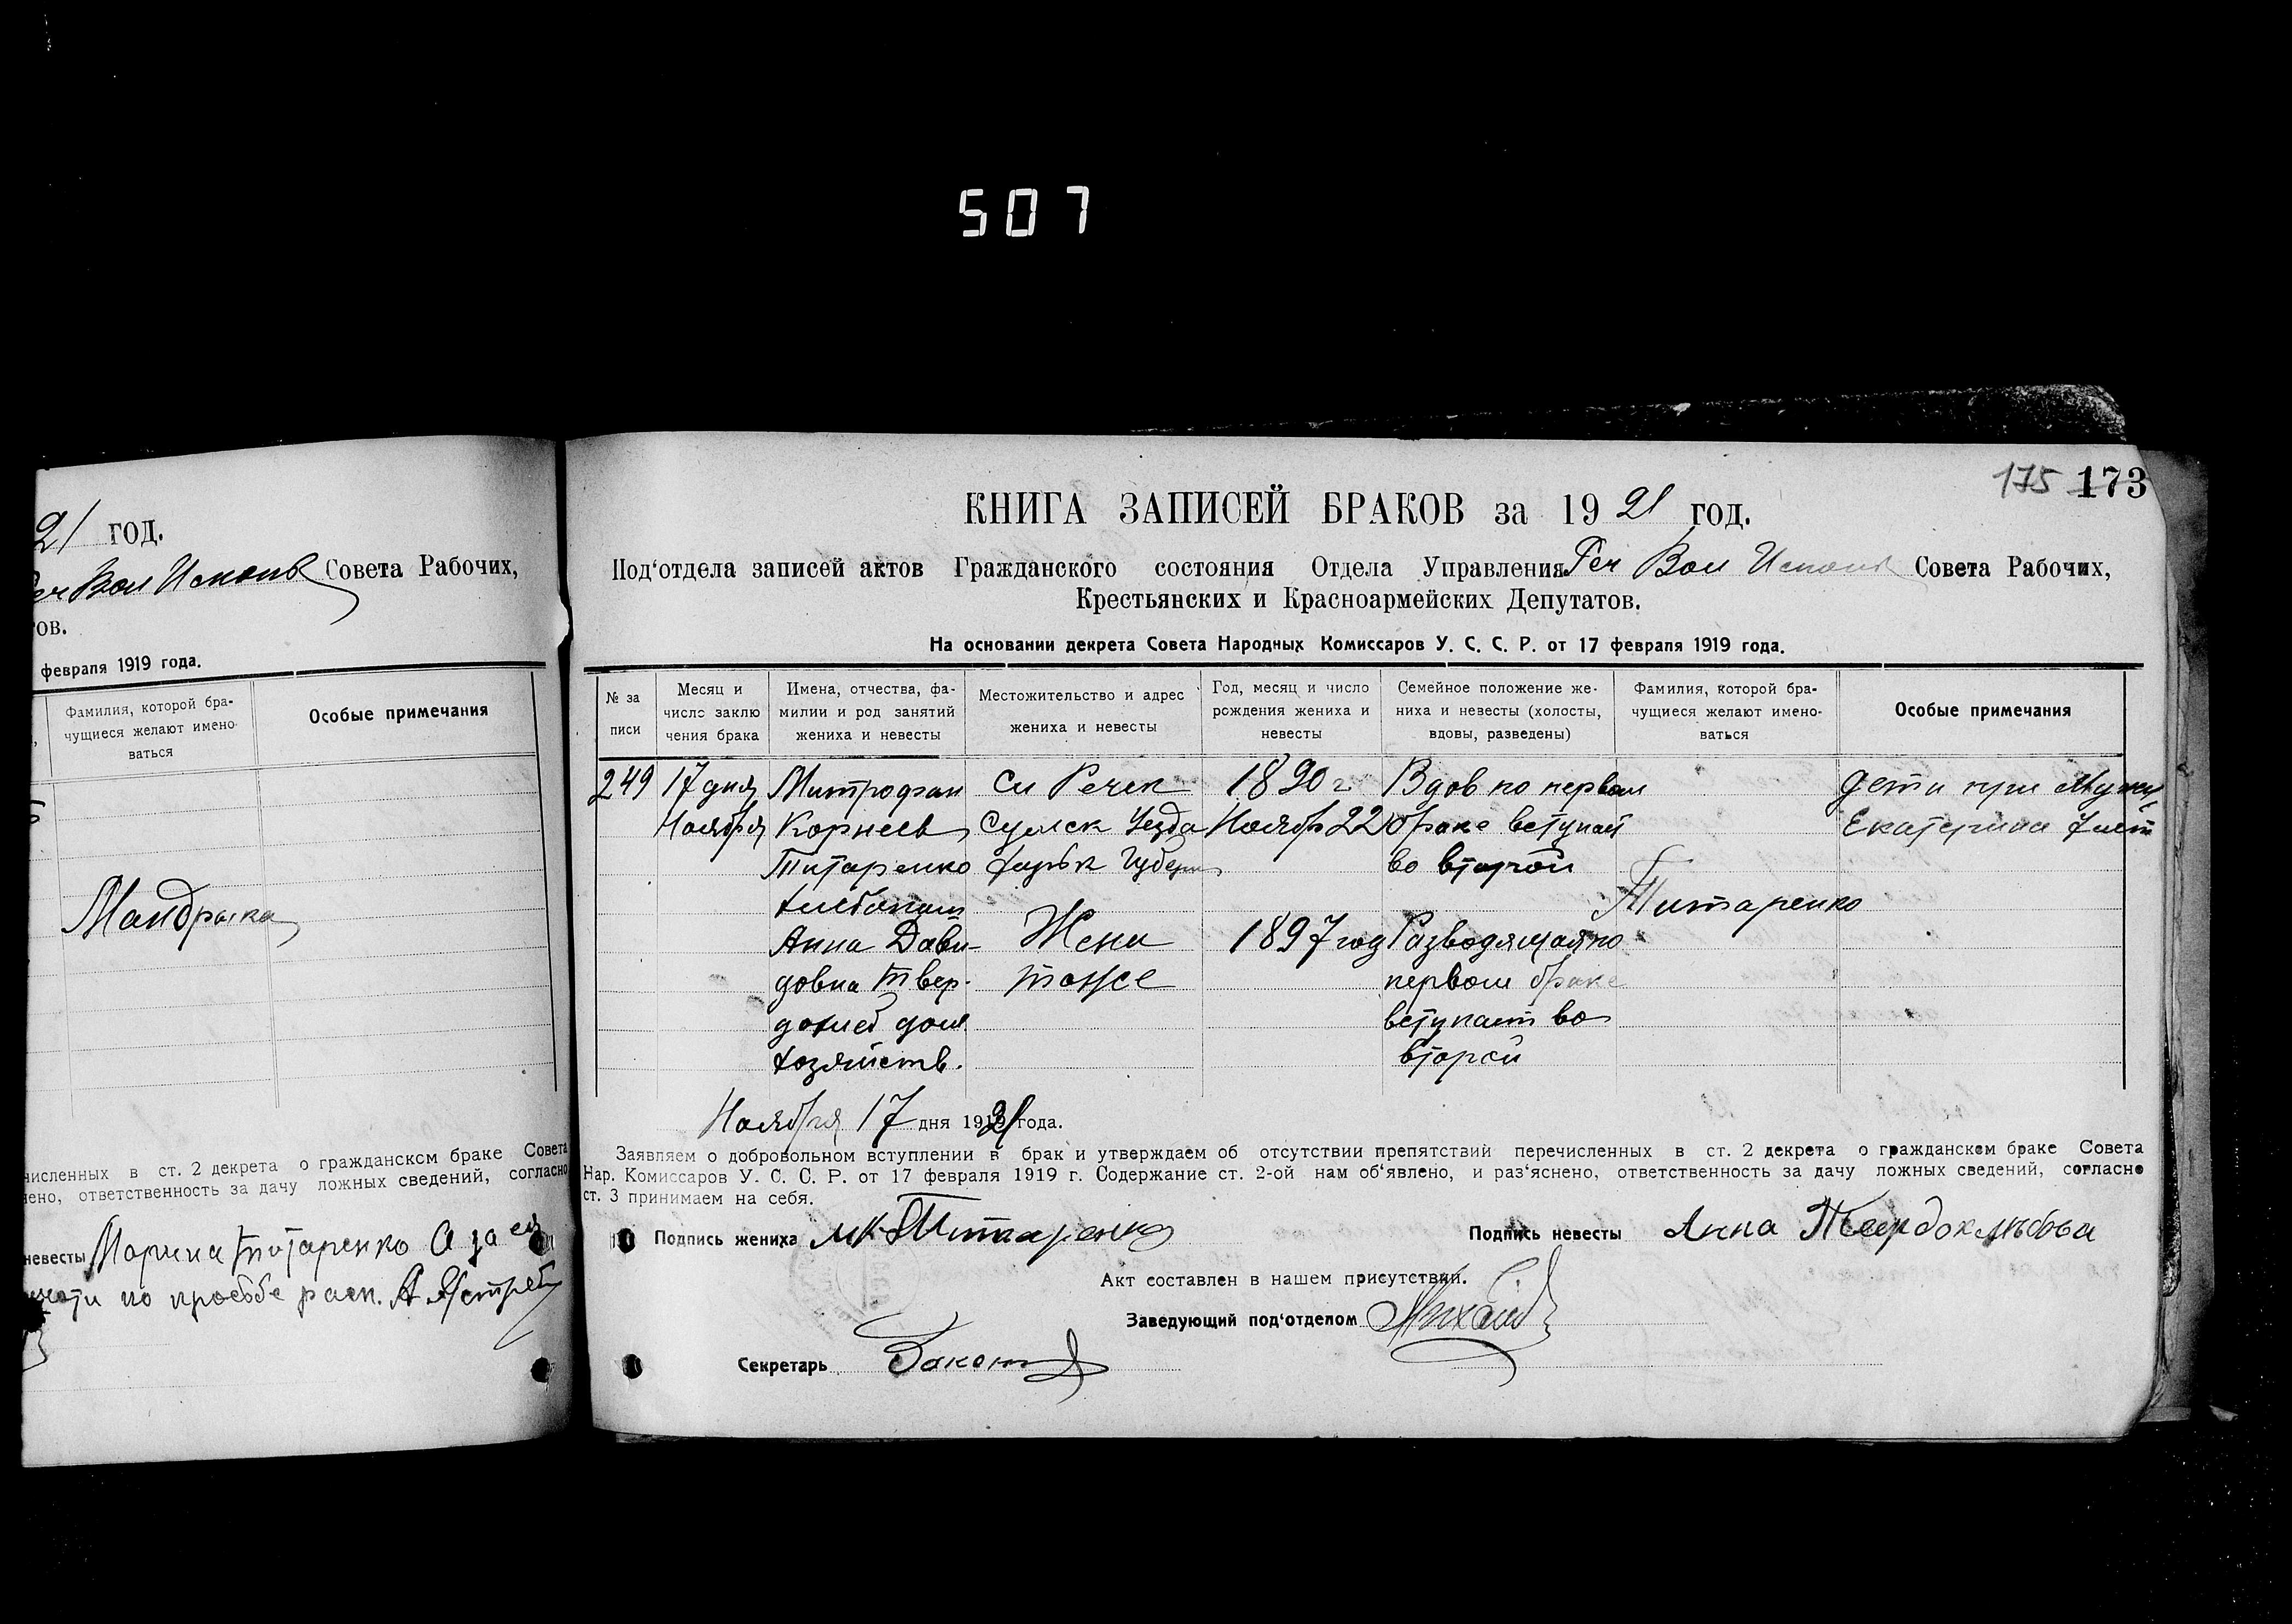 507
21 год.
Реч Вол Исполк Совета Рабочих,
тов.
февраля 1919 года.
Фамилия, которой бра-
чущиеся желают имено-
ваться
Особые примечания
Мандрыка
численных в ст. 2 декрета о гражданском браке Совета
нено, ответственность за дачу ложных сведений, согласно
невесты Марина Титаренко а за ея
по просьбе расп. А Ястреб
175 173
КНИГА ЗАПИСЕЙ БРАКОВ за 1921 год.
Под‘отдела записей актов Гражданского состояния Отдела Управления Реч Вол Исполк Совета Рабочих,
Крестьянских и Красноармейских Депутатов.
На основании декрета Совета Народных Комиссаров У. С. С. Р. от 17 февраля 1919 года.
№ за
писи
Месяц и
число заклю
чения брака
Имена, отчества, фа-
милии и род занятий
жениха и невесты
Местожительство и адрес
жениха и невесты
Год, месяц и число
рождения жениха и
невесты
Семейное положение же-
ниха и невесты (холосты,
вдовы, разведены)
Фамилия, которой бра-
чущиеся желают имено-
ваться
Особые примечания
249
17 дня
Ноября
Митрофан
Корнеев
Титаренко
хлебопаш
Анна Дави-
довна Твер-
дохлеб дом
хозяйств.
сл Речек
Сумск Уезда
Харьк Губерн
Жена
тоже
1890 г
Ноябр 22
1897 год
Вдов по первом
браке вступает
во второй
Разводящая по
первом браке
вступает во
второй
Титаренко
дети при муже
Екатерина 7 лет
Ноября 17 дня 1921 года.
Заявляем о добровольном вступлении в брак и утверждаем об отсутствии препятствий перечисленных в ст. 2 декрета о гражданском браке Совета
Нар. Комиссаров У. С. С. Р. от 17 февраля 1919 г. Содержание ст. 2-ой нам об‘явлено, и раз‘яснено, ответственность за дачу ложных сведений, согласно
ст. 3 принимаем на себя.
Подпись жениха МК Титаренко
Подпись невесты Анна Твердохлебова
Акт составлен в нашем присутствии.
Заведующий под‘отделом
Секретарь